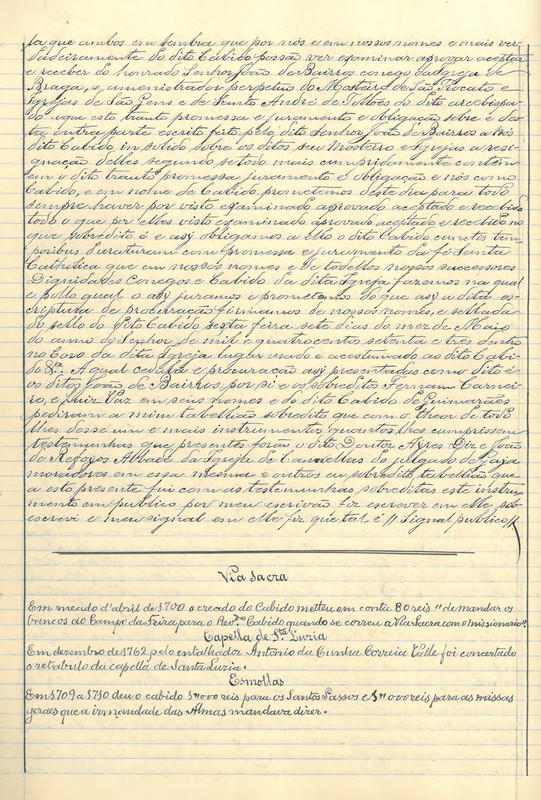 ta que ambos em sembra que por nós e em nossos nomes e mais ver
dadeiramente do dito Cabido possão ver examinar aprovar aceptar
e receber do honrado Senhor João de Bairros conego da Igreja de
Braga, e amenistrador perpetuo do Mosteiro de São Torcato e
Igrejas de São Gens e de Santo André de Telloes do dito arcebispa
do a que esto trauto promessa e juramento e obrigação sobre e des
ta, outra parte escrito feito pelo dito Senhor João de Bairros a Nós
dito Cabido, in solido sobre os ditos seu Mosteiro e Igrejas a resi
gnação delles segundo se todo mais cumpridamente contém
em o dito trauto promessa juramento e obligação e nós como
Cabido, e em nome de Cabido prometemos deste dia para todo
sempre haver por visto examinado aprovado aceptado e recebido
todo o que por elles visto examinado aprovado aceptado e recebido no
que sobredito é e asy obligamos a ello o dito Cabido cunctis tem
poribus duraturum com promessa e juramento da fé Santa
Catholica que em nossos nomes e de todollos nossos successores
Dignidades Conegos e Cabido da dita Igreja fazemos na qual
e pollo qual o asy juramos e prometemos do que asy a dita es-
criptura de procuração firmamos de nossos nomes, e sellada
do sello do dito Cabido sexta feira sete dias do mez de Maio
do anno do Senhor de mil e quatrocentos setenta e tres dentro
no Coro da dita Igreja lugar usado e acostumado ao dito Cabi-
do &.ª A qual cedula e procuração asy presentadas como dito é
os ditos João de Bairros, por si e os sobreditos Fernam Carnei-
ro, e Luiz Vaz em seus nomes e do dito Cabido de Guimarães
pediram a mim tabellião sobredito que com o theor de todo
lhes desse um e mais instrumentos quantos lhes cumprissem
testemunhas que presentes forão o dito Doutor Ayres Diz e João
de Refojos Abbade da Igreja de Candellas
moradores em essa mesma e outros eu sobredito, tabellião que
a esto presente fui com as testemunhas sobreditas este instru
mento em publico por meu escrivão fiz escrever em elle sob-
escrevi e meu signal em elle fiz que tal é // Signal publico //
Via Sacra
Em meado d'abril de 1700 o creado do Cabido metteu em conta 80 reis "de mandar os
brancos do Campo da Feira para o Rev.mo Cabido quando se correu a Via Sacra com o missionario".
Capella de S.ta Luzia
Em dezembro de 1762, pelo entalhador Antonio da Cunha Correia Valle foi concertado
o retabulo da capella de Santa Luzia.
Esmollas
Em 1709 a 1710 deu o cabido 1$000 reis para os Santos Passos e 1$000 reis para as missas
geraes que a irmandade das Almas mandava dizer.